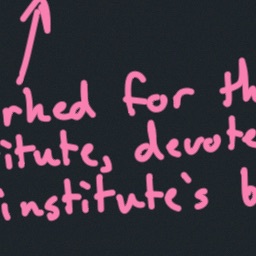 rked for th
itute, devote
institute's b